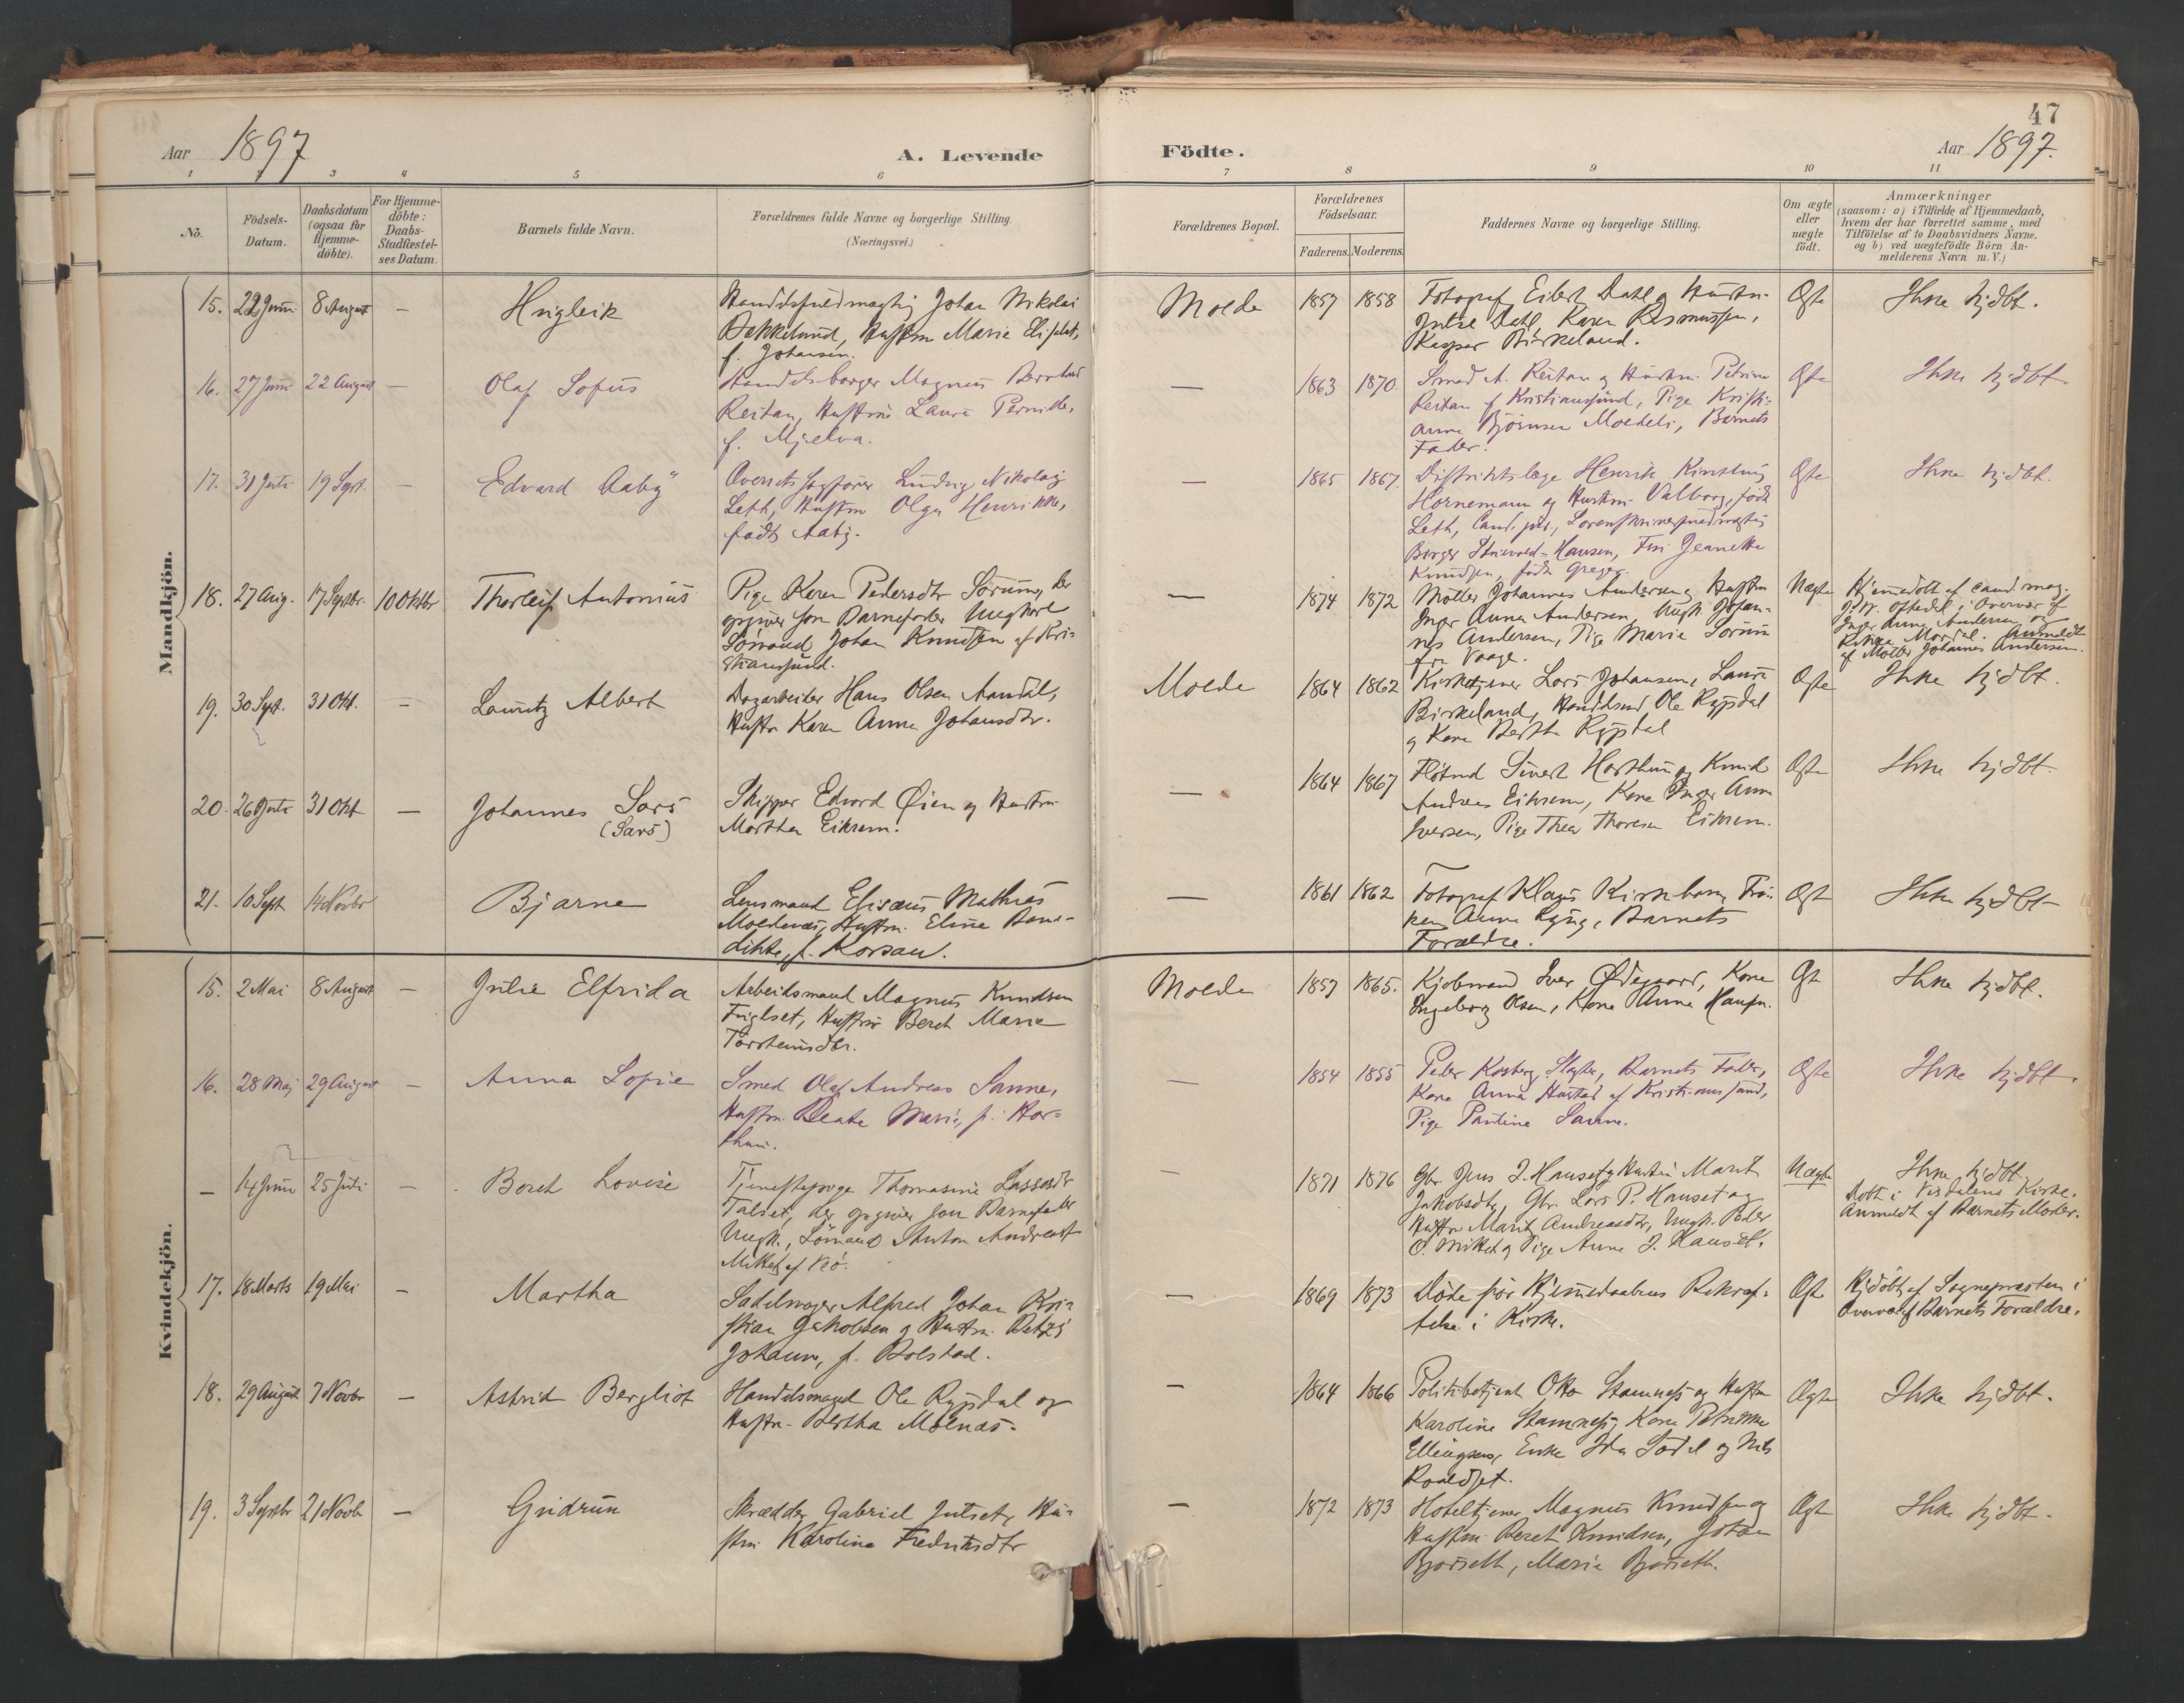 47
Aar 1897
A. Levende
Födte.
Aar 1897.
1 2 3 4 5 6 7 8 9 10 11
No.
Födsels-Datum.
Daabsdatum (ogsaa for Hjemme-döbte).
For Hjemme-döbte: Daabs-Stadfæstel-ses Datum.
Barnets fulde Navn.
Forældrenes fulde Navne og borgerlige Stilling.
(Næringsvei.)
Forældrenes Bopæl.
Forældrenes Födselsaar.
Faderens. Moderens.
Faddernes Navne og borgerlige Stilling.
Om ægte eller uægte födt.
Anmærkninger
(saasom: a) i Tilfælde af Hjemmedaab,
hvem der har forrettet samme, med
Tilföielse af to Daabsvidners Navne.
og b) ved uægtefödte Börn An-
melderens Navn m.V.)
Mandkjön.
15. 22 Juni 8 August —
Hugleik
Handelsfuldmægtig Johan Nikolai
Birkelund, Hustru Marie Elisabet,
f. Johansen.
Molde
1857 1858
Fotograf Eilert Dahl og Hustru
Julie Dahl, Karen Rasmussen,
Kasper Birkeland.
Ægte
Ikke hjdbt.
16. 27 Juni 22 August —
Olaf Sofus
Handelsborger Magnus Berntus
Reitan, Hustru Laura Pernille,
f. Mjelva.
—
1863 1870.
Smed A. Reitan og Hustru Petrine
Reitan af Kristiansund, Pige Kristi-
anne Bjørnsen Moldeli, Barnets
Fader.
Ægte
Ikke hjdbt.
17. 31 Juli 19 Sept. —
Edvard Aaby
Overretssagfører Ludvig Nikolay
Leth, Hustru Olga Henrikke,
født Aaby.
—
1865 1867.
Distriktslæge Henrik
Hornemann og Hustru Valborg, født
Leth, Cand. jur., Sorenskriverfuldmægtig
Borger Hansen, Fru Jeanette
Knudsen, født
Ægte
Ikke hjdbt.
18. 27 Aug. 17 Septbr. 10 Oktbr
Thorleif Antonius
Pige Karen Pedersdtr Sørum, der
opgiver som Barnefader Ungkarl
Sømand Johan Knudsen af Kri-
stiansund.
—
1874 1872
Møller Johannes Andersen og Hustru
Inger Anna Andersen, Ungk. Johan-
nes Andersen, Pige Marie Sørum
fra Vaage.
Uægte
Hjemmedøbt af cand. mag.
Oftedal i Overvær af
Inger Anna Andersen og
Anmeldt
af Møller Johannes Andersen.
19. 30 Sept. 31 Okt. —
Lauritz Albert
Dagarbeider Hans Olsen Aandal,
Hustru Karen Anna Johansdtr.
Molde
1864 1862
Kirketjener Lars Johansen, Laura
Birkeland, Handelsmd Ole Rypdal
og Kone Bertha Rypdal
Ægte
Ikke hjdbt.
20. 26 Juli 31 Okt —
Johannes Lars
(Lars)
Skipper Edvard Øien og Hustru
Marthea Eikrem.
—
1864 1867
Sivert Horsthun og Knud
Andreas Eikrem, Kone Inger Anna
Iversen, Pige Thea Thoresen Eikrem.
Ægte
Ikke hjdbt.
21. 10 Sept 14 Novbr
Bjarne
Lensmand Elisæus Mathias
Moldenæs, Hustru Eline Bene-
dikte, f. Korsan.
—
1861 1862
Fotograf Klaus Kirkhorn, Frø-
ken Anna, Barnets
Forældre.
Ægt
Ikke hjdbt
Kvindekjön.
15. 2 Mai 8 August —
Julie Elfrida
Arbeidsmand Magnus Knudsen
Fuglset, Hustru Beret Marie
Torsteinsdtr.
Molde
1857 1865.
Kjøbmand Iver Ødegaard, Kone
Ingeborg Olsen, Kone Anna Hansen.
Ægte
Ikke hjdbt.
16. 28 Maj 29 August —
Anna Sofie
Smed Olaf Andreas Sanne,
Hustru Beate Marie, f. Hor-
sthun.
—
1854 1855
Peter Kosberg, Slagter, Barnets Fader,
Kone Anna Hustad af Kristiansund,
Pige Pauline Sanne.
Ægte
Ikke hjdbt.
— 14 Juni 25 Juli —
Beret Lovise
Tjenestepige Thomasine Lassesdtr
Talset, der opgiver som Barnefader
Ungk., Sømand Anton Andreas
af
—
1871 1876
Gbr. Jens J. Hauset og Hustru Marit
Jakobsdtr, Gbr. Lars P. Hauset og
Hustru Marit Andreasdtr, Ungk. Peder
O. og Pige Anne J. Hauset.
Uægte
Ikke hjdbt.
Døbt i Visdalens Kirke.
Anmeldt af Barnets Moder.
17. 18 Marts 19 Mai —
Martha
Sadelmager Alfred Johan Kri-
stian Jakobsen og Hustru Betzi
Johanne, f. Bolstad.
—
1869 1873
Døde før Hjemmedaabens Bekræf-
telse i Kirke.
Ægte
Hjdøbt af Sognepræsten i
Overvær af Barnets Forældre.
18. 29 August 7 Novbr —
Astrid Bergliot
Handelsmand Ole Rypdal og
Hustru Bertha Moenæs.
—
1864 1866
Politibetjent Otto Stamnes og Hustru
Karoline Stamnes, Kone Petrikke
Ellingsen, Enke Ida Sødal og Nils
Roaldset.
Ægte
Ikke hjdbt.
19. 3 Septbr 21 Novbr —
Gudrun
Skrædder Gabriel Julset, Hu-
stru Karoline Fredriksdtr
—
1872 1873
Hoteltjener Magnus Knudsen og
Hustru Beret Knudsen, Johan
Bjørseth, Marie Bjørseth.
Ægte
Ikke hjdbt.